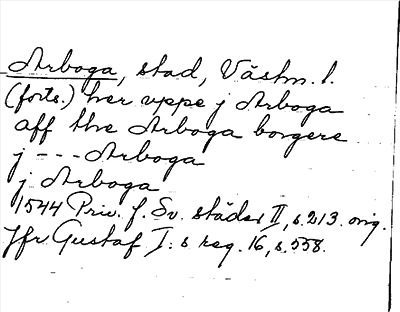 Arboga, stad, Västm. l.
(forts.) her uppe j Arboga
aff the Arboga borgere
j --- Arboga
j Arboga
1544 Priv. f. Sv. städer II, s. 213. orig.
Jfr Gustaf I:s reg. 16, s. 558.